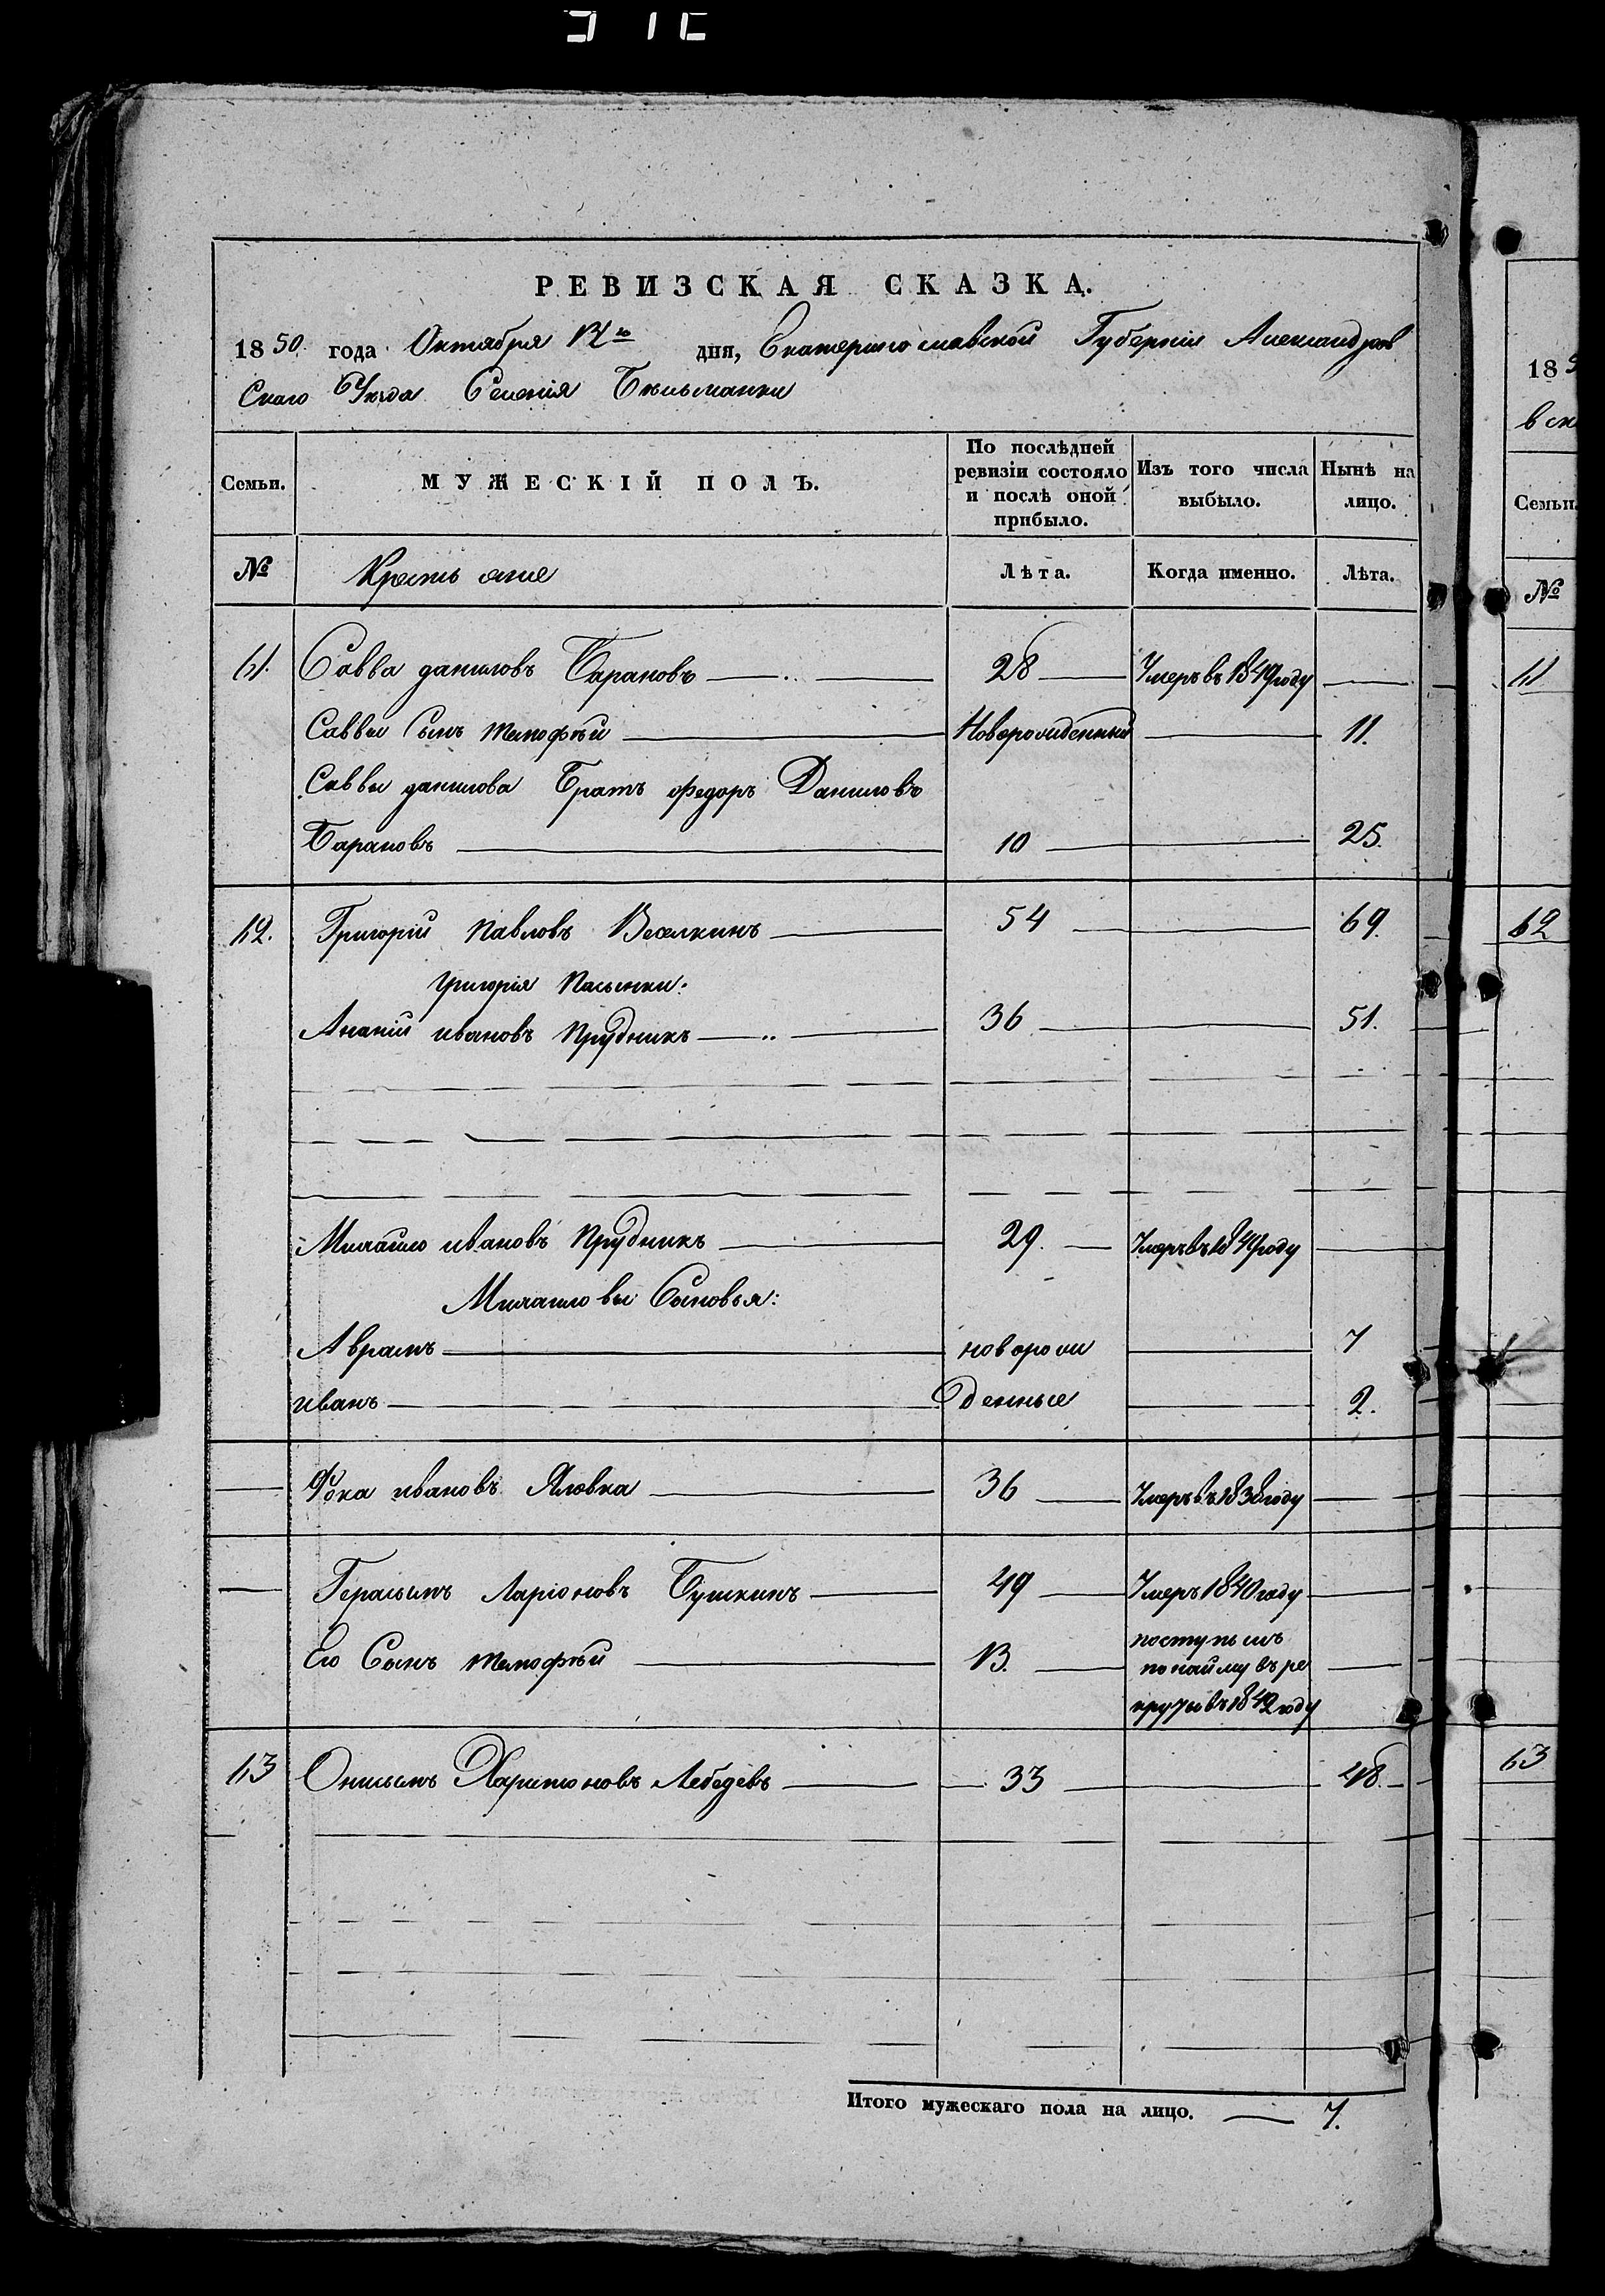 РЕВИЗСКАЯ СКАЗКА.
1850 года Октября дня, Екатеринославской Губерніи Александров
скаго Уѣзда Селенія Бѣльманки
Семьи.
МУЖЕСКІЙ ПОЛЪ.
По послѣдней ревизіи состояло и послѣ оной прибыло.
Изъ того числа выбыло.
Нынѣ на лицо.
№
Крестьяне
Лѣта.
Когда именно.
Лѣта.
11. Савва даниловъ Барановъ 28 Умеръ въ 1849 году
Саввы Сынъ тимофѣй Новорожденный 11.
Саввы данилова Братъ федоръ Даниловъ
Барановъ 10 25.
12. Григорій павловъ Веселкинъ 54 69.
григорія пасынки:
Ананій ивановъ прудникъ 36 51.
Михайло ивановъ прудникъ 29. Умеръ въ 1849 году
Михайловы Сыновья:
Аврамъ новорож 7
иванъ денные 2.
Фока ивановъ Яловка 36 Умеръ въ 1838 году
Герасимъ Ларіоновъ Бушкинъ 49 Умеръ 1840 году
Его Сынъ тимофѣй 13. поступилъ
по найму въ ре
круты въ 1842 году
13 Онисимъ Харитоновъ Лебедевъ 33 48.
Итого мужескаго пола на лицо. 7.
18
Семьи.
№
11
12
13